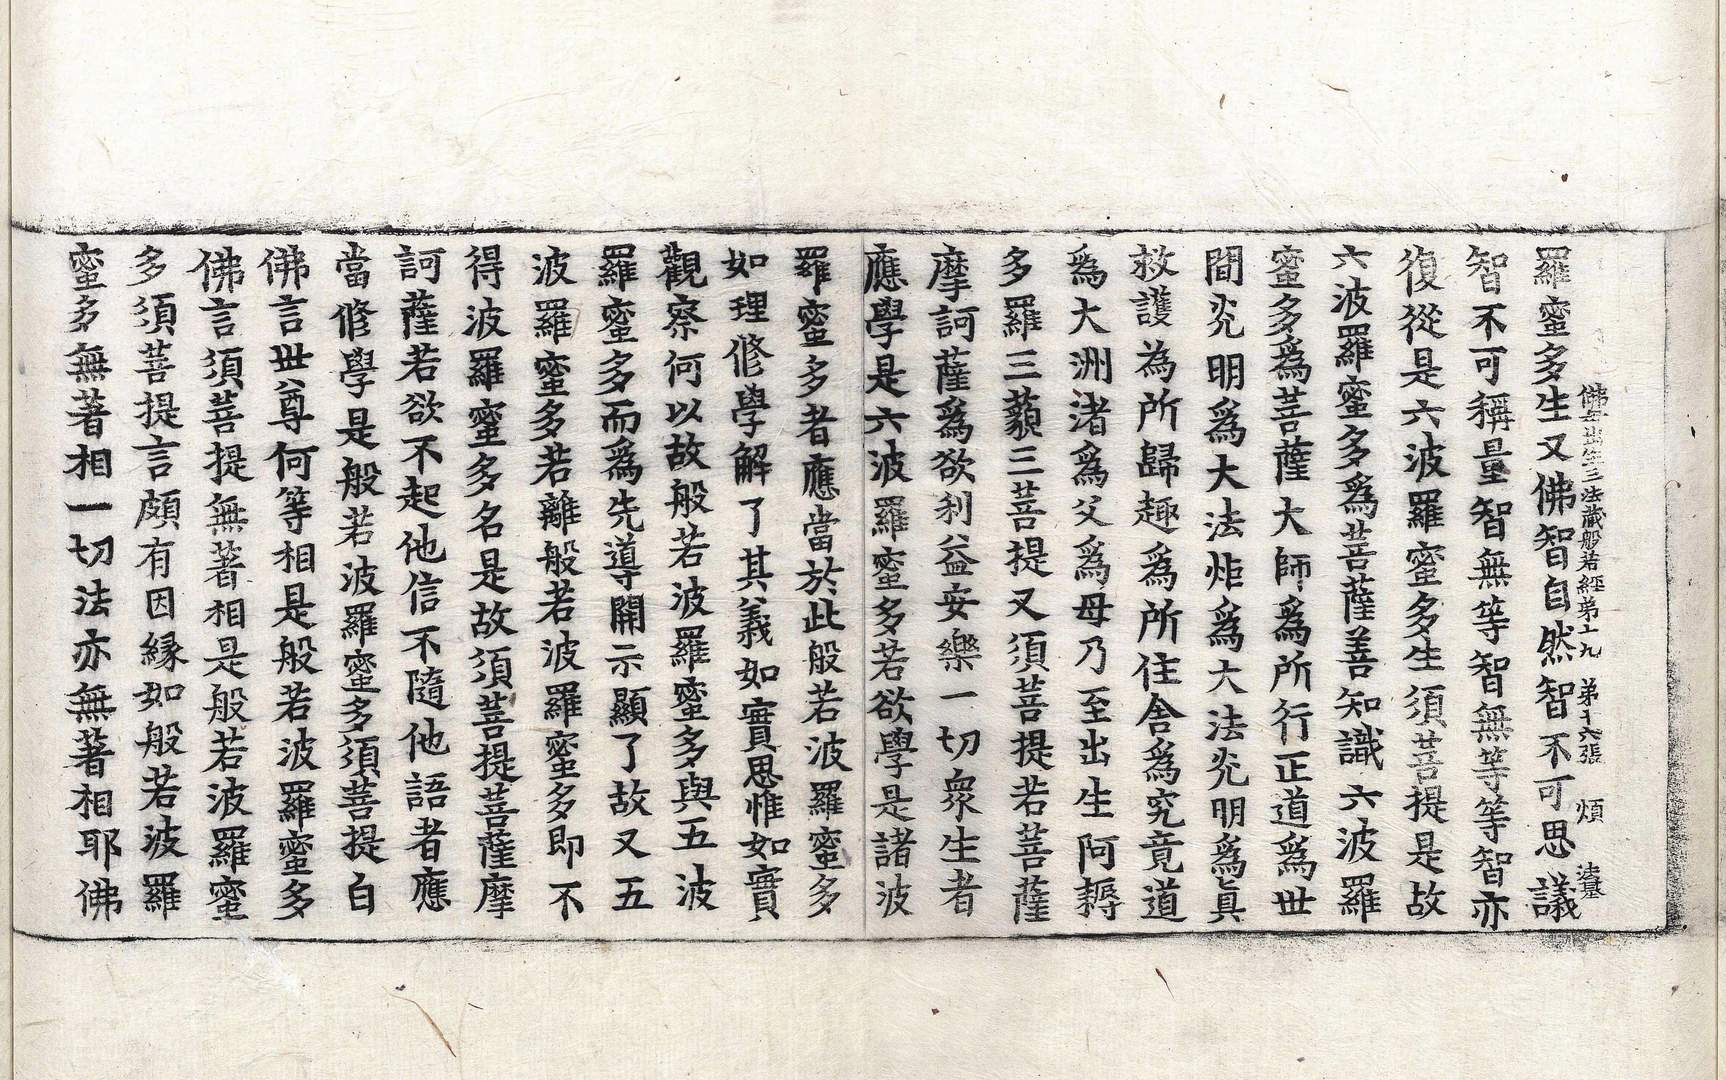 佛母出生三法藏般若經第十九 第十六張 煩 法基
羅蜜多生又佛智自然智不可思議
智不可稱量智無等智無等等智亦
復從是六波羅蜜多生須菩提是故
六波羅蜜多爲菩薩善知識六波羅
蜜多爲菩薩大師爲所行正道爲世
間光明爲大法炬爲大法光明爲眞
救護為所歸趣爲所住舍爲究竟道
爲大洲渚爲父爲母乃至出生阿耨
多羅三藐三菩提又須菩提若菩薩
摩訶薩爲欲利益安樂一切衆生者
應學是六波羅蜜多若欲學是諸波
羅蜜多者應當於此般若波羅蜜多
如理修學解了其義如實思惟如實
觀察何以故般若波羅蜜多與五波
羅蜜多而爲先導開示顯了故又五
波羅蜜多若離般若波羅蜜多即不
得波羅蜜多名是故須菩提菩薩摩
訶薩若欲不起他信不隨他語者應
當修學是般若波羅蜜多須菩提白
佛言世尊何等相是般若波羅蜜多
佛言須菩提無著相是般若波羅蜜
多須菩提言頗有因縁如般若波羅
蜜多無著相一切法亦無著相耶佛